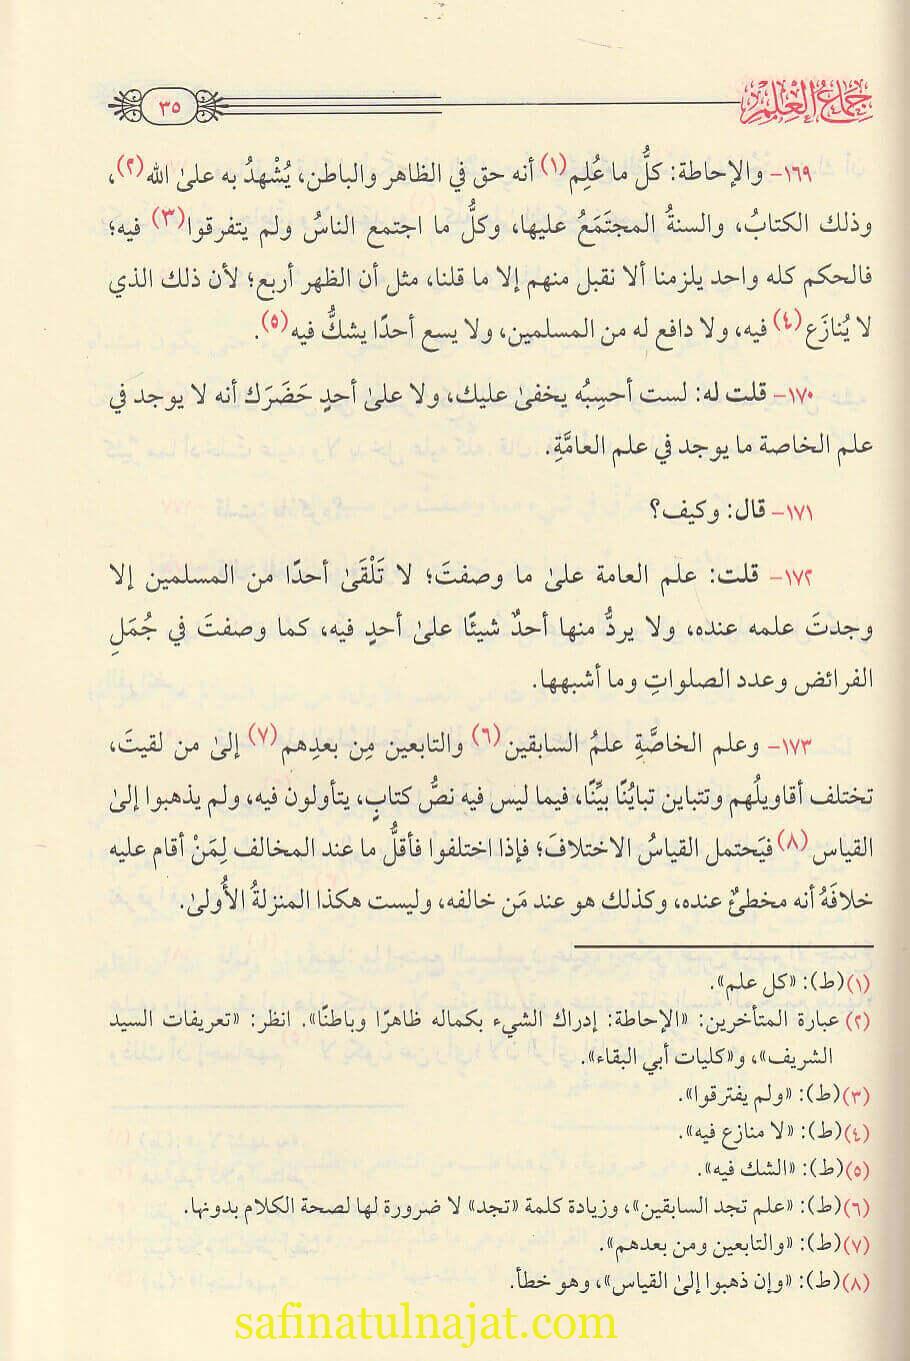 جماع العلم
٣٥
١٦٩- والإحاطة: كلُّ ما عُلِم(١) أنه حق في الظاهر والباطن، يُشْهدُ به علىٰ الله(٢)،
وذلك الكتابُ، والسنةُ المجتَمَعُ عليها، وكلُّ ما اجتمع الناسُ ولم يتفرقوا(٣) فيه؛
فالحكم كله واحد يلزمنا ألا نقبل منهم إلا ما قلنا، مثل أن الظهر أربع؛ لأن ذلك الذي
لا يُنازَع(٤) فيه، ولا دافع له من المسلمين، ولا يسع أحدًا يشكُّ فيه(٥).
١٧٠- قلت له: لست أحسِبُه يخفىٰ عليك، ولا علىٰ أحدٍ حَضَرَك أنه لا يوجد في
علم الخاصة ما يوجد في علم العامَّةِ.
١٧١- قال: وكيف؟
١٧٢- قلت: علم العامة علىٰ ما وصفتَ؛ لا تَلْقَىٰ أحدًا من المسلمين إلا
وجدتَ علمه عنده، ولا يردُّ منها أحدٌ شيئًا علىٰ أحدٍ فيه، كما وصفتَ في جُمَلِ
الفرائض وعدد الصلواتِ وما أشبهها.
١٧٣- وعلم الخاصَّةِ علمُ السابقين(٦) والتابعين مِن بعدِهم(٧) إلىٰ من لقيتَ،
تختلف أقاويلُهم وتتباين تبايُنًا بيِّنًا، فيما ليس فيه نصُّ كتابٍ، يتأولون فيه، ولم يذهبوا إلىٰ
القياس(٨) فيَحتمل القياسُ الاختلافَ؛ فإذا اختلفوا فأقلُّ ما عند المخالف لِمَنْ أقام عليه
خلافَهُ أنه مخطئٌ عنده، وكذلك هو عند مَن خالفه، وليست هكذا المنزلةُ الأُولىٰ.
(١) (ط): «كل علم».
(٢) عبارة المتأخرين: «الإحاطة: إدراك الشيء بكماله ظاهرًا وباطنًا». انظر: «تعريفات السيد
الشريف»، و«كليات أبي البقاء».
(٣) (ط): «ولم يفترقوا».
(٤) (ط): «لا منازع فيه».
(٥) (ط): «الشك فيه».
(٦) (ط): «علم تجد السابقين»، وزيادة كلمة «تجد» لا ضرورة لها لصحة الكلام بدونها.
(٧) (ط): «والتابعين ومن بعدهم».
(٨) (ط): «وإن ذهبوا إلىٰ القياس»، وهو خطأ.
safinatulnajat.com